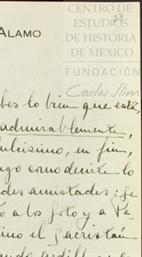 ALAMO
CENTRO DE
ESTUDIOS
DE HISTORIA
DE MEXICO
FUNDACIÓN
Carlos Slim
bes lo bien que está,
admirablemente,
en fin,
go como decirte lo
des amistades; se
ó a los foto y a Pe
ino el sacristán